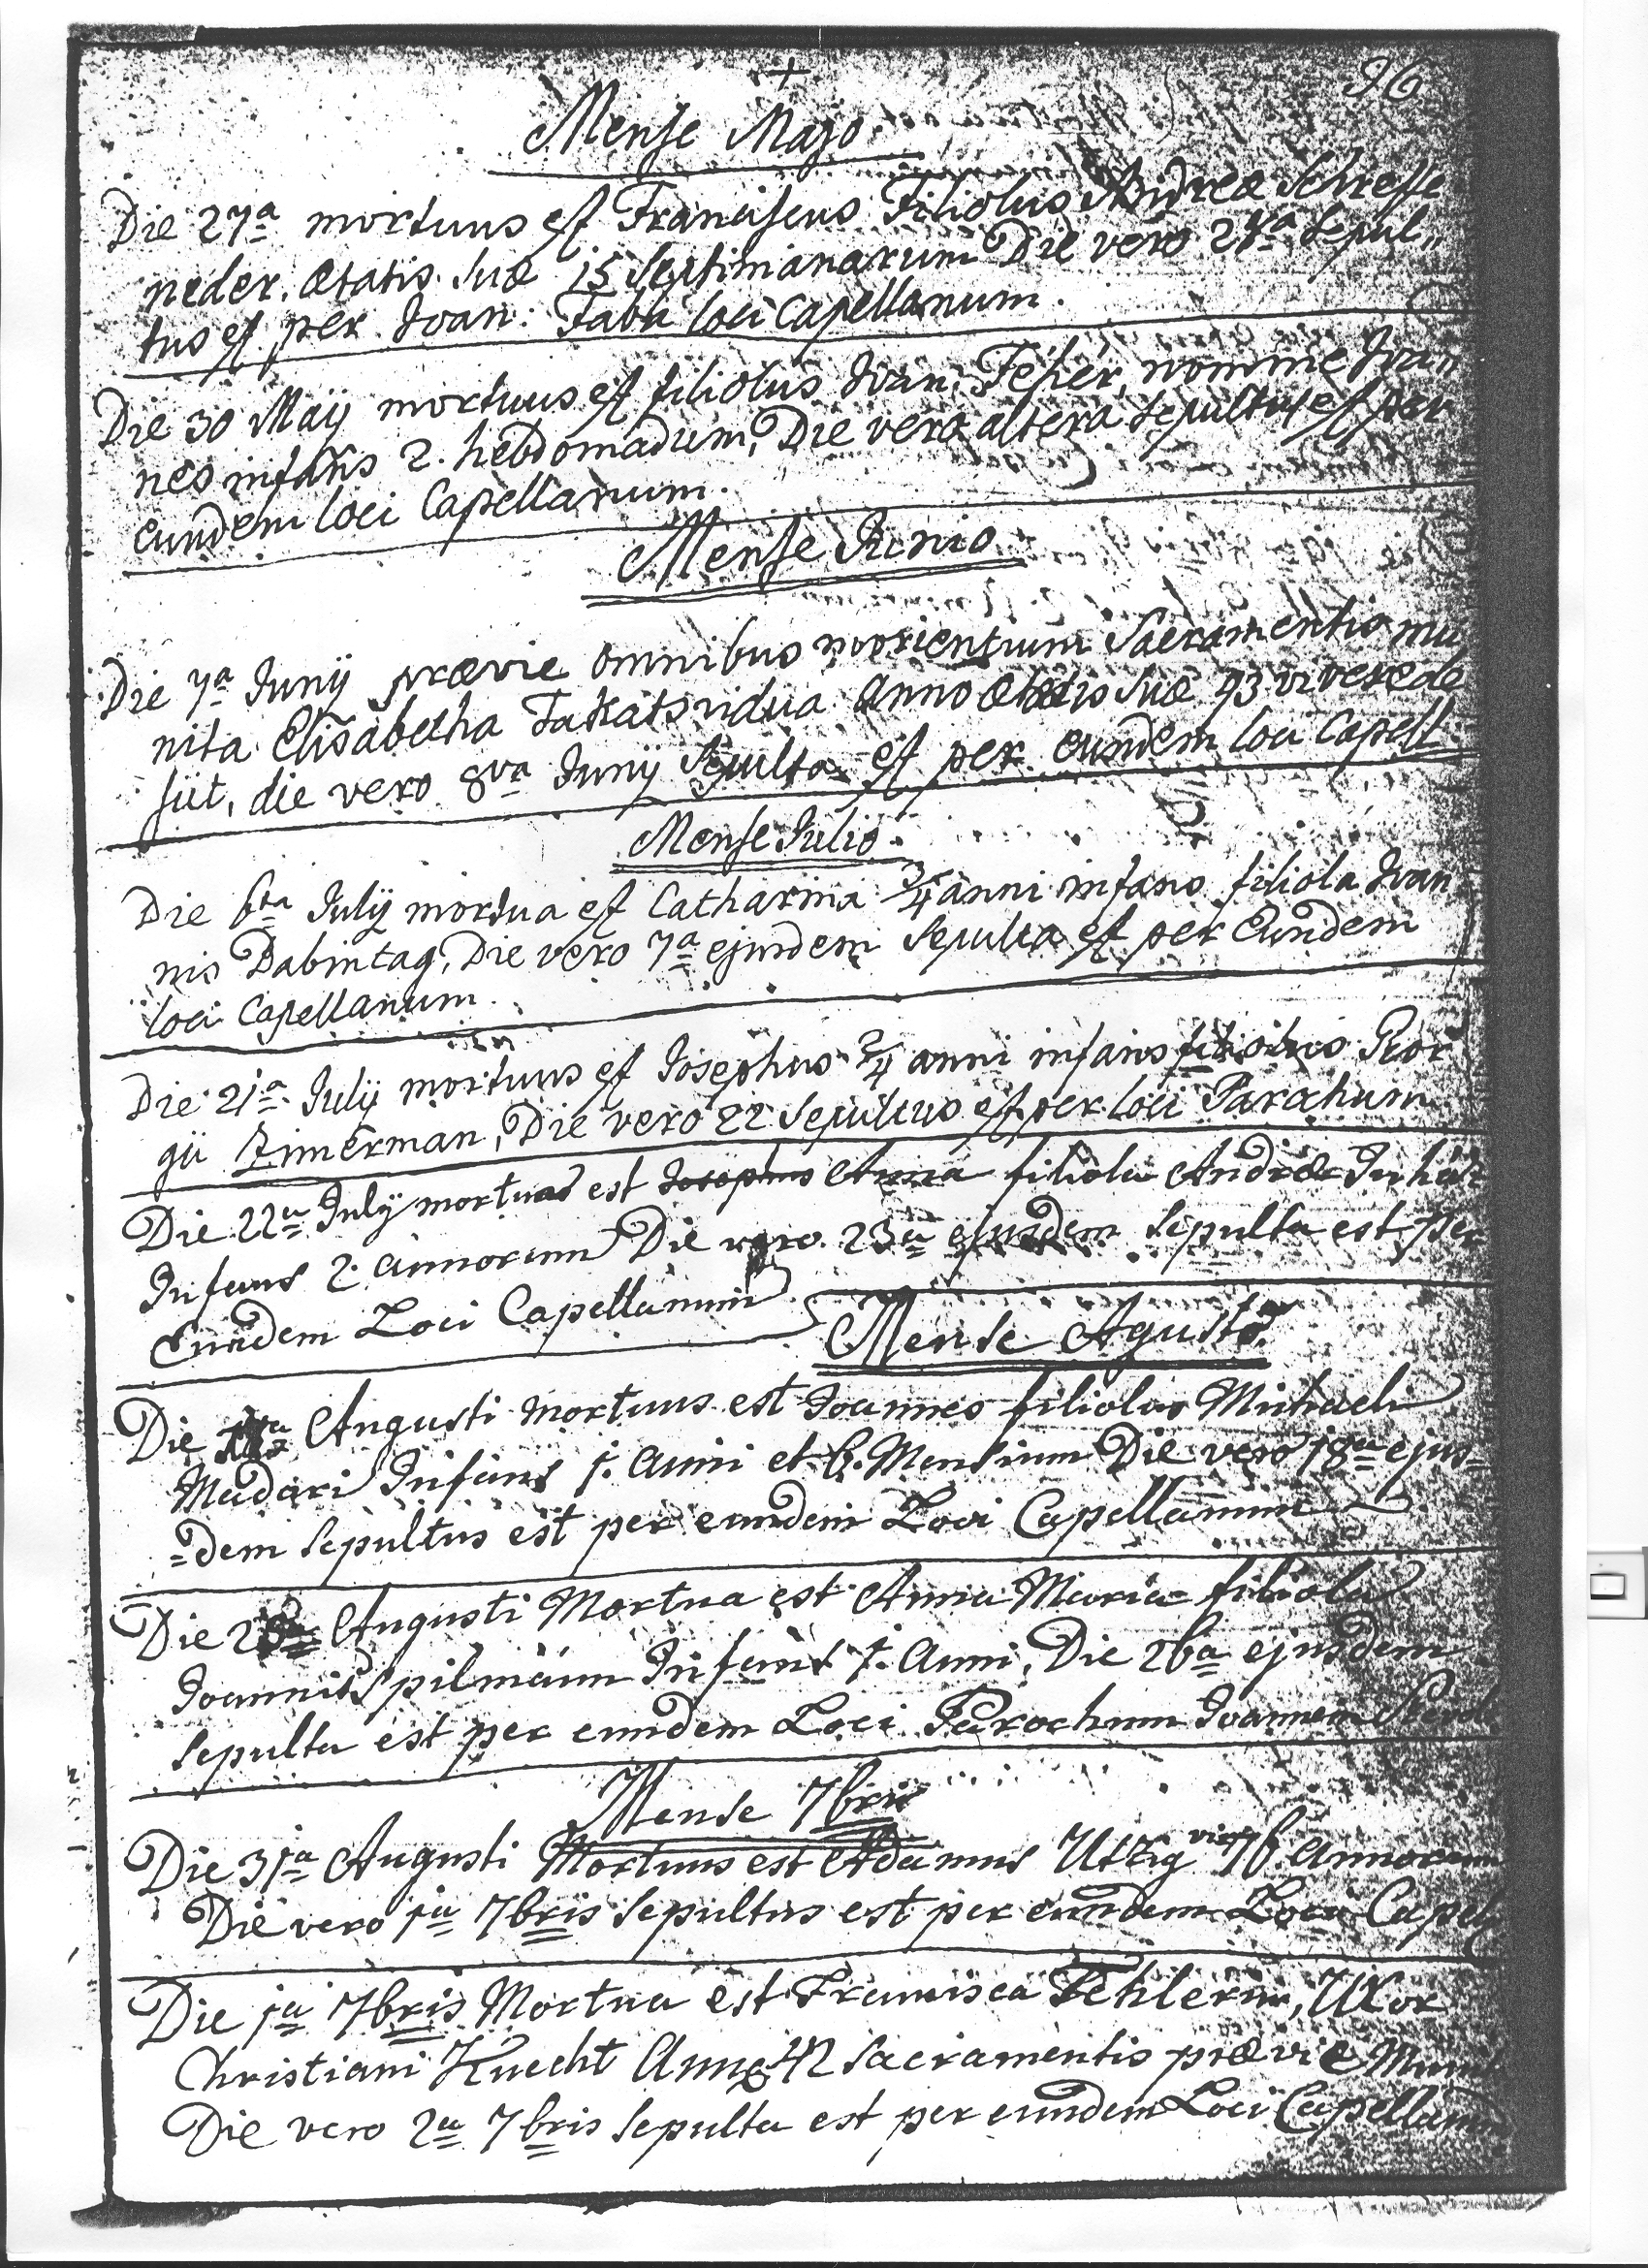 96
Mense Majo
Die 27a mortuus est Franciscus Filiolus Andreæ Schreffe
neder. ætatis suæ 15 Septimanarum Die vero 28a Sepul„
tus est per Ioan: Faba loci Capellanum.
Die 30 Maij mortuus est filiolus Ioan: Féhér, nomine Ioan
nes infans 2. hebdomadum, Die vero altera sepultus est per
eundem loci Capellanum.
Mense Junio
Die 7a Junij prævie omnibus morientium Sacramentis mu
nita Elisabetha Takats vidua anno ætatis suæ 93 vivere de
siit, die vero 8va Junij Sepulta est per eundem loci Capell:
Mense Julio
Die 6ta Julij mortua est Catharina 3/4 anni infans filiola Ioan
nis Dabintag, Die vero 7a ejusdem Sepulta est per Eundem
loci Capellanum.
Die 21a Julij mortuus est Josephus 3/4 anni infans filiolus Geor
gii Zimerman, Die vero 22 Sepultus est per loci Parochum
Die 22a July mortua est Josephus Anna filiola Andreæ Juhás
Infans 2. annorum Die vero 23a ejusdem Sepulta est per
Eundem Loci Capellanum
Mense Agusto
Die Augusti mortuus est Joannes filiolus Michaeli
Madari Infans 1. Anni et 6. Mensium Die vero 18a ejus=
=dem Sepultus est per eundem Loci Capellanum
Die Augusti Mortua est Anna Maria filiola
Joannis Spilmann Infans 1. Anni, Die 26a ejusdem
Sepulta est per eundem Loci Parochum Joannem
Mense 7bris
Die 31a Augusti Mortuus est Adamus Utzig 76 Annorum
Die vero 1a 7bris Sepultus est per eundem Loci Capell
Die 1a 7bris Mortua est Francisca Uxor
Christiani Knecht Anno 42 Sacramentis prævie Munit
Die vero 2a 7bris Sepulta est per eundem Loci Capellanum